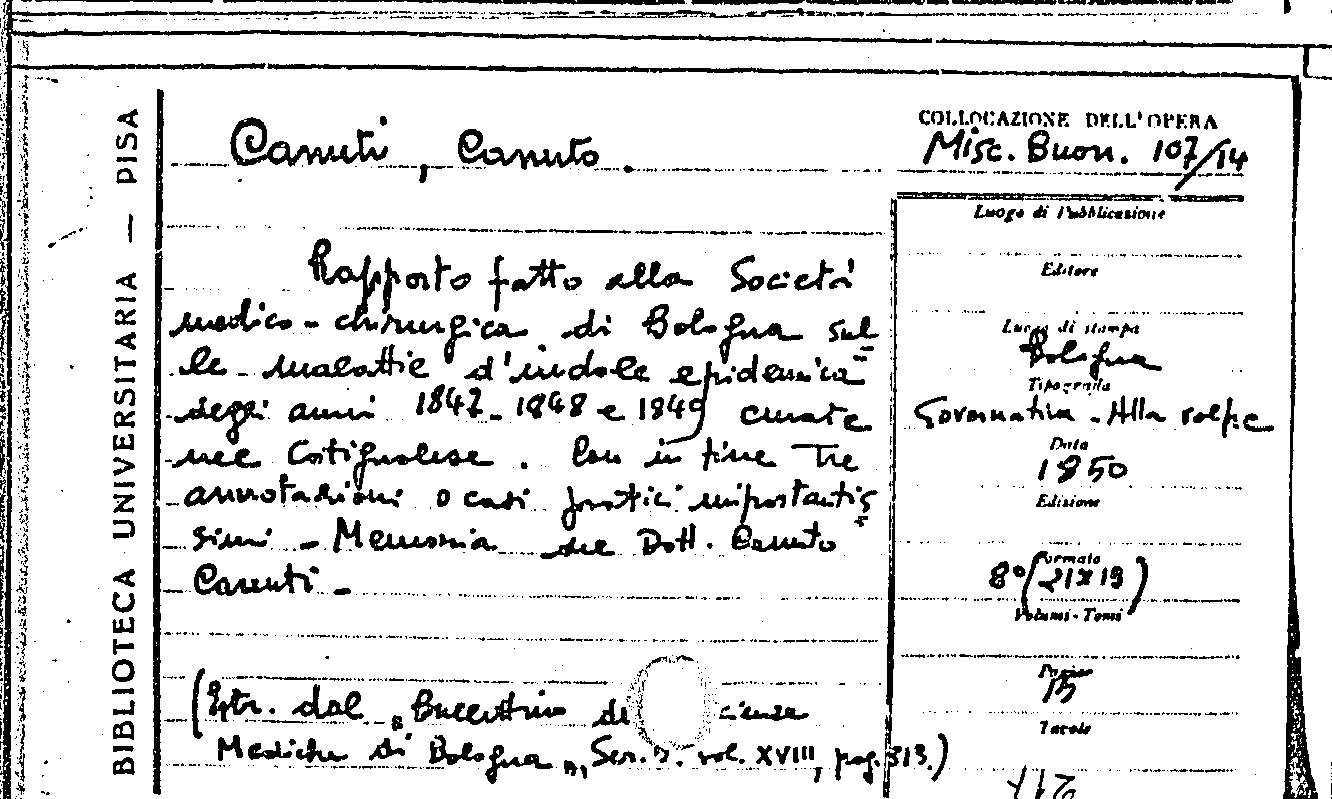 BIBLIOTECA UNIVERSITARIA — PISA
Canuti, Canuto.
COLLOCAZIONE DELL'OPERA
Misc. Buon. 107/14
Rapporto fatto alla Società
medico-chirurgica di Bologna sul=
le malattie d'indole epidemica
degli anni 1847-1848 e 1849 curate
nel Cotignolese. Con in fine Tre
annotazioni o casi pratici importantis=
simi - Memoria del Dott. Canuto
Canuti -
(Estr. dal „Bullettino de cienze
Mediche di Bologna", Ser. 3. vol. XVIII, pag. 313.)
Luogo di Pubblicazione
Editore
Luogo di stampa
Bologna
Tipografia
Governativa - Alla Volpe
Data
1850
Edizione
Formato
8° (21x13)
Volumi - Tomi
Pagine
Tavole